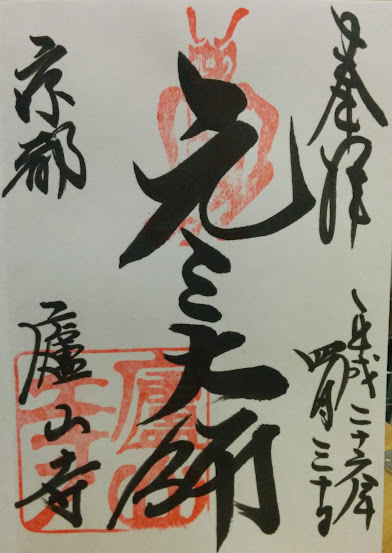 奉拝
平成二十六年
四月三十日
元三大師
京都
廬山寺
廬山寺